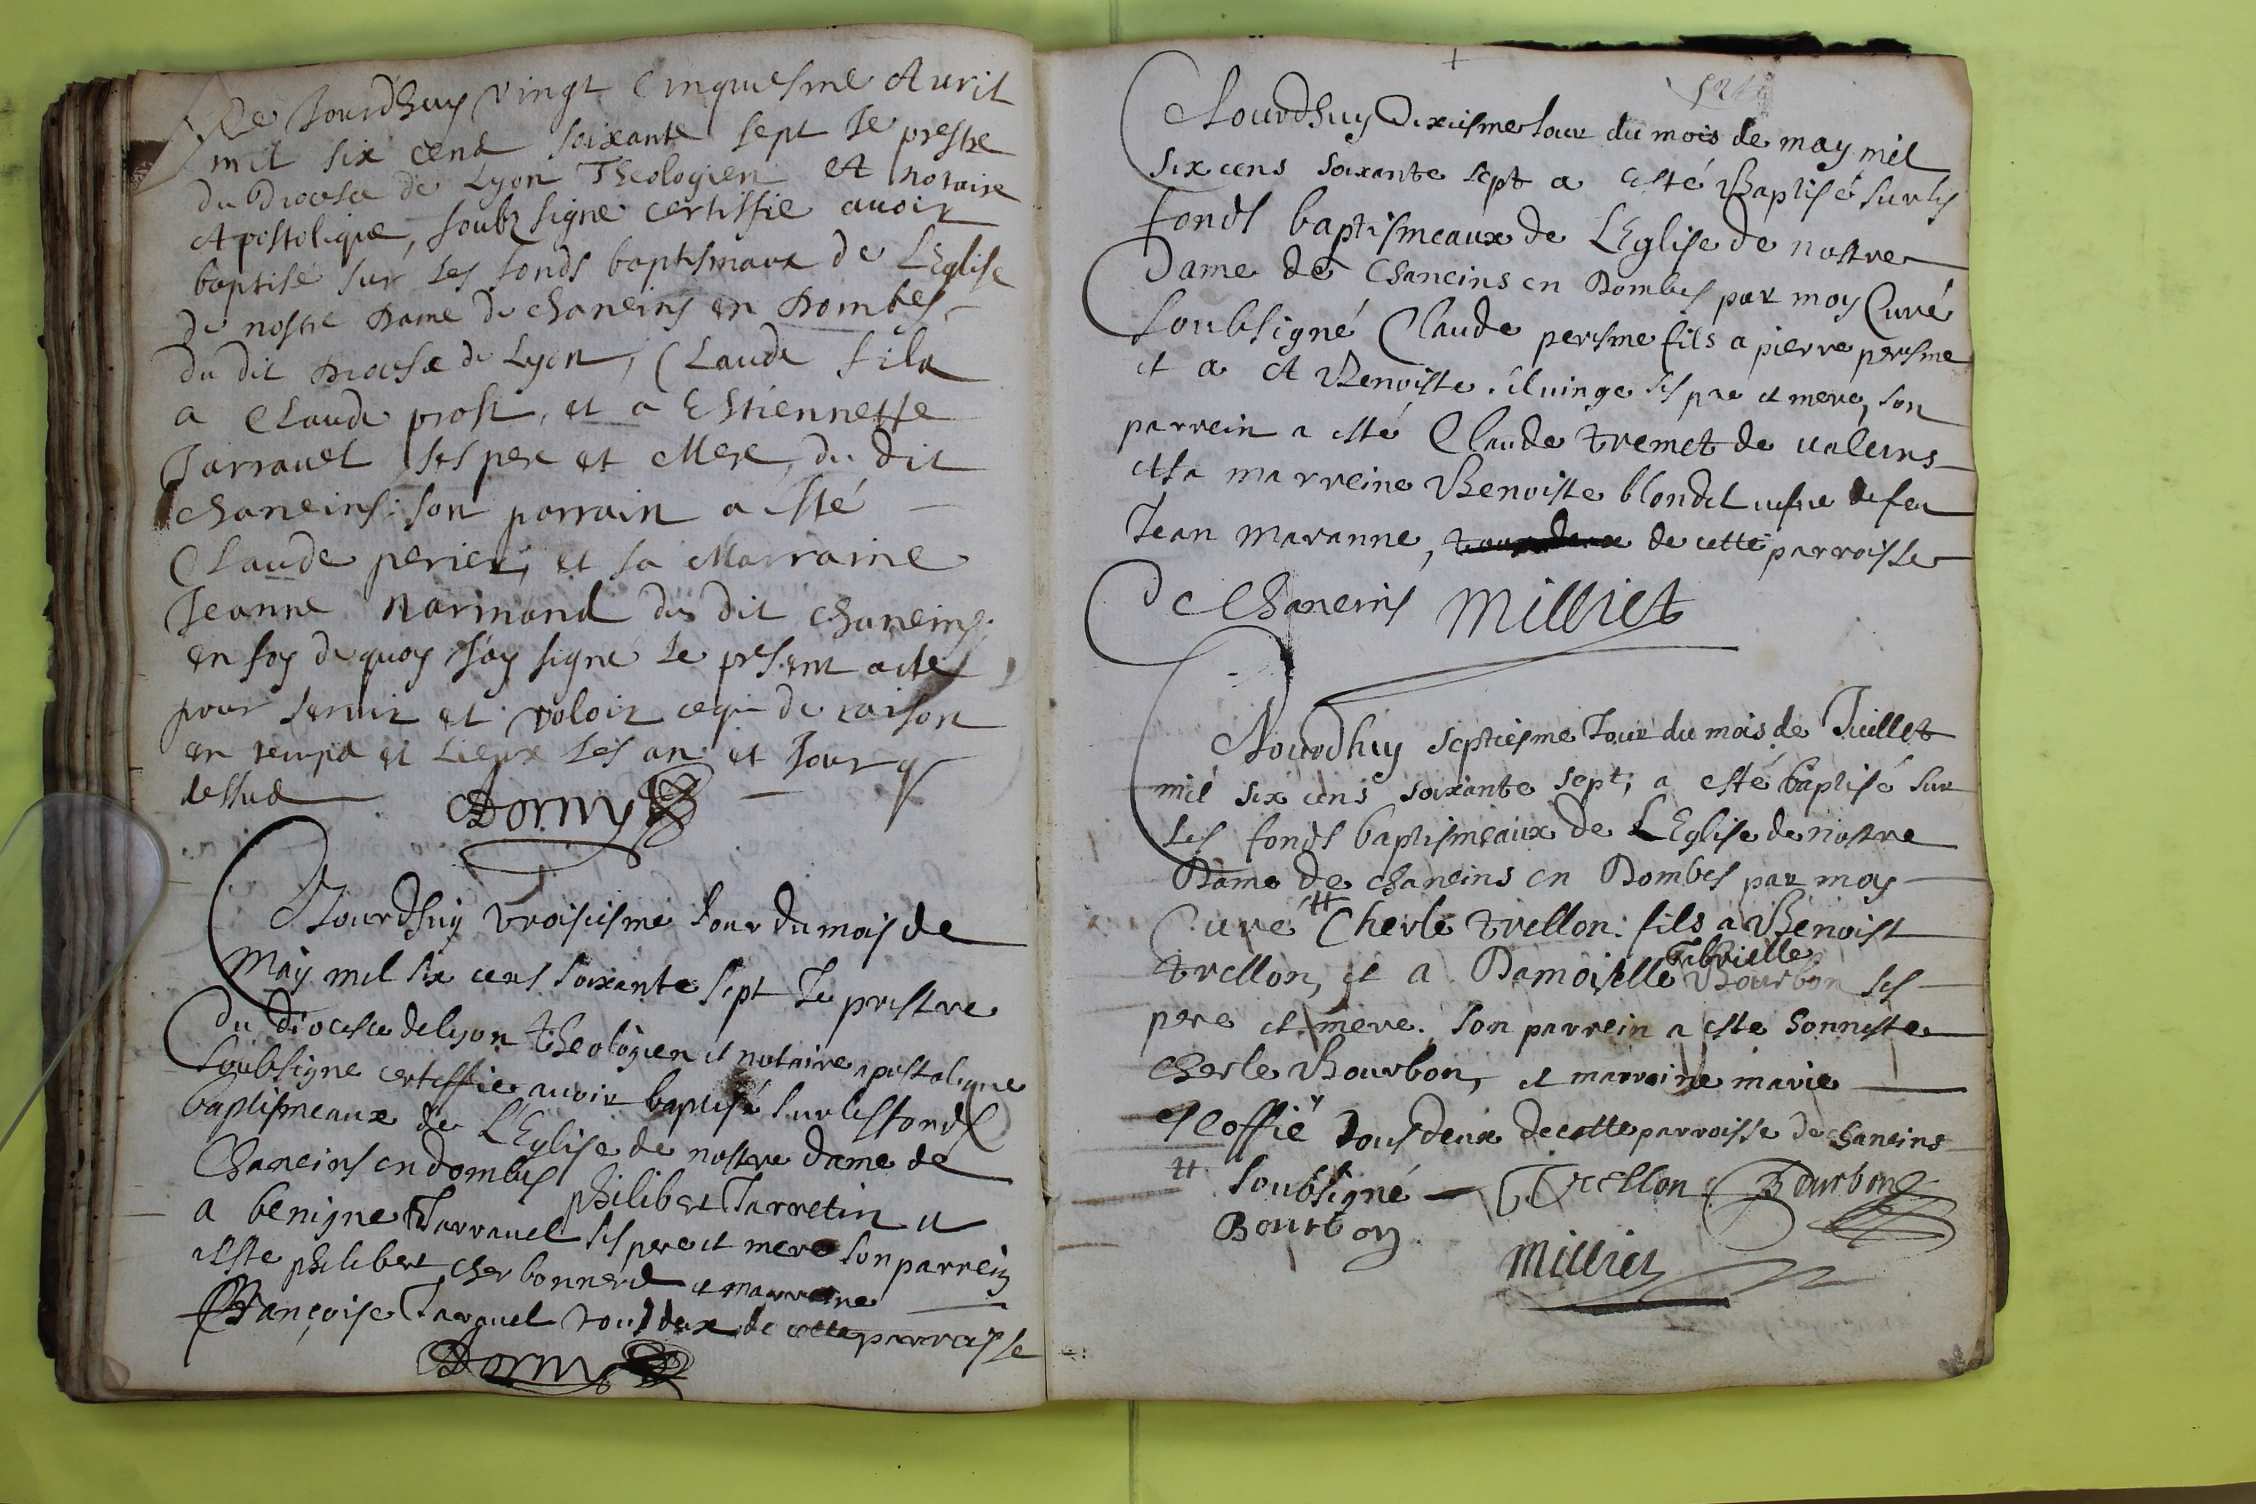 Ce Jourdhuy vingt Cinquiesme Avril
mil six cend soixante sept Je prestre
du Diocese de Lyon Theologien et notaire
Apostolique, soubz signé certiffie avoir
baptisé sur les fonds baptismaux de LEglise
de nostre Dame de chaneins en Dombes
du dit Diocese de Lyon, Claude fils
a Claude prost, et a Estiennette
Jarravel ses pere et Mere, du dit
chaneins: son parrain a esté
Claude perier, et sa Marraine
Jeanne Normand du dit chaneins
en foy de quoy J'ay signé le present acte
pour servir et valoir ce que de raison
en temps et Lieux les an et Jour q
dessus
Dorny
AJourdhuy troisiesme Jour du mois de
May mil six cens soixante sept Je prestre
du diocese de lyon theologien et notaire apostolique
soubsigne certiffie avoir baptisé sur les fonds
baptismeaux de L'Eglise de nostre dame de
Chaneins en dombes philibert Jarretin
a benigne Jarravel ses pere et mere son parrein
a este philibert cherbonnerd et marreine
Françoise Jarravel tous deux de cette parroisse
Dorny
AJourdhuy Dixiesme Jour du mois de may mil
six cens soixante sept a esté Baptisé sur les
fonds baptismeaux de LEglise de nostre
Dame de Chaneins en Dombes par moy Curé
soubsigné Claude persme fils a pierre persme
et a A Benoiste ses pere et mere, son
parrein a esté Claude tremet de valeins
et sa marreine Benoiste blondel vefve de feu
Jean maranne, de cette parroisse
De Chaneins Milliet
AJourdhuy septiesme Jour du mois de Juillet
mil six cens soixante sept; a esté baptisé sur
les fonds baptismeaux de LEglise de nostre
Dame de chaneins en Dombes par moy
Curé # Cherle trellon: fils a Benoist
trellon, et a Damoiselle Gabrielle Bourbon ses
pere et mere. son parrein a este honneste
cherle Bourbon, et marraine marie
escoffié tous deux de cette parroisse de chaneins
# soubsigné Trellon Bourbon
Bourbon
Milliet